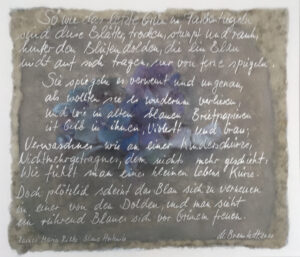 So wie das letzte Grün in Farbentiegeln
sind diese Blätter, trocken, stumpf und rauh,
hinter den Blütendolden, die ein Blau
nicht auf sich tragen, nur von ferne spiegeln.
Sie spiegeln es verweint und ungenau,
als wollten sie es wiederum verlieren,
und wie in alten blauen Briefpapieren
ist Gelb in ihnen, Violett und Grau;
Verwaschnes wie an einer Kinderschürze,
Nichtmehrgetragnes, dem nichts mehr geschieht:
Wie fühlt man eines kleinen Lebens Kürze.
Doch plötzlich scheint das Blau sich zu verneuen
in einer von den Dolden, und man sieht
ein rührend Blaues sich vor Grünem freuen.
Rainer Maria Rilke Blaue Hortensie